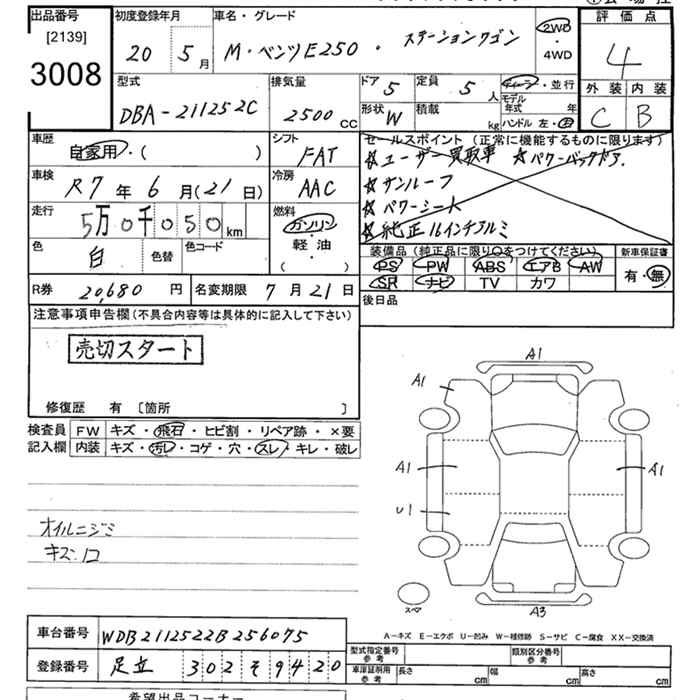 出品番号 [2139] 3008
初度登録年月 20 5月
車名・グレード M・ベンツE250・ステーションワゴン
2WD・4WD
評価点 4
外装 内装
C B
型式 DBA-211252C
排気量 2500 cc
ドア 5 定員 5 人
形状 W 積載 kg
ディーラー・並行
モデル年式 年
ハンドル 左・右
車歴 自家用・( )
シフト FAT
車検 R7年6月(21日)
冷房 AAC
走行 5万0千050km
燃料 ガソリン・軽油・( )
色 白 色替 色コード
セールスポイント (正常に機能するものに限ります)
☆ユーザー買取車 ☆パワーバックドア.
☆サンルーフ
☆パワーシート
☆純正16インチアルミ
装備品 (純正品に限り○をつけてください)
PS PW ABS エアB AW
SR ナビ TV カワ
新車保証書 有・無
R券 20,680円 名変期限 7月21日
後日品
注意事項申告欄 (不具合内容等は具体的に記入して下さい)
売切スタート
修復歴 有 〔箇所 〕
検査員記入欄
FW キズ・飛石・ヒビ割・リペア跡・×要
内装 キズ・汚レ・コゲ・穴・スレ・キレ・破レ
オイルニジミ
キズ.凹
A1
A1
A1
A1
U1
A3
スペア
A-キズ E-エクボ U-凹み W-補修跡 S-サビ C-腐食 XX-交換済
車台番号 WDB2112522B256075
登録番号 足立 302 そ 9420
型式指定番号 参考 類別区分番号 参考
車庫証明用 参考 長さ cm 幅 cm 高さ cm
希望出品コーナー